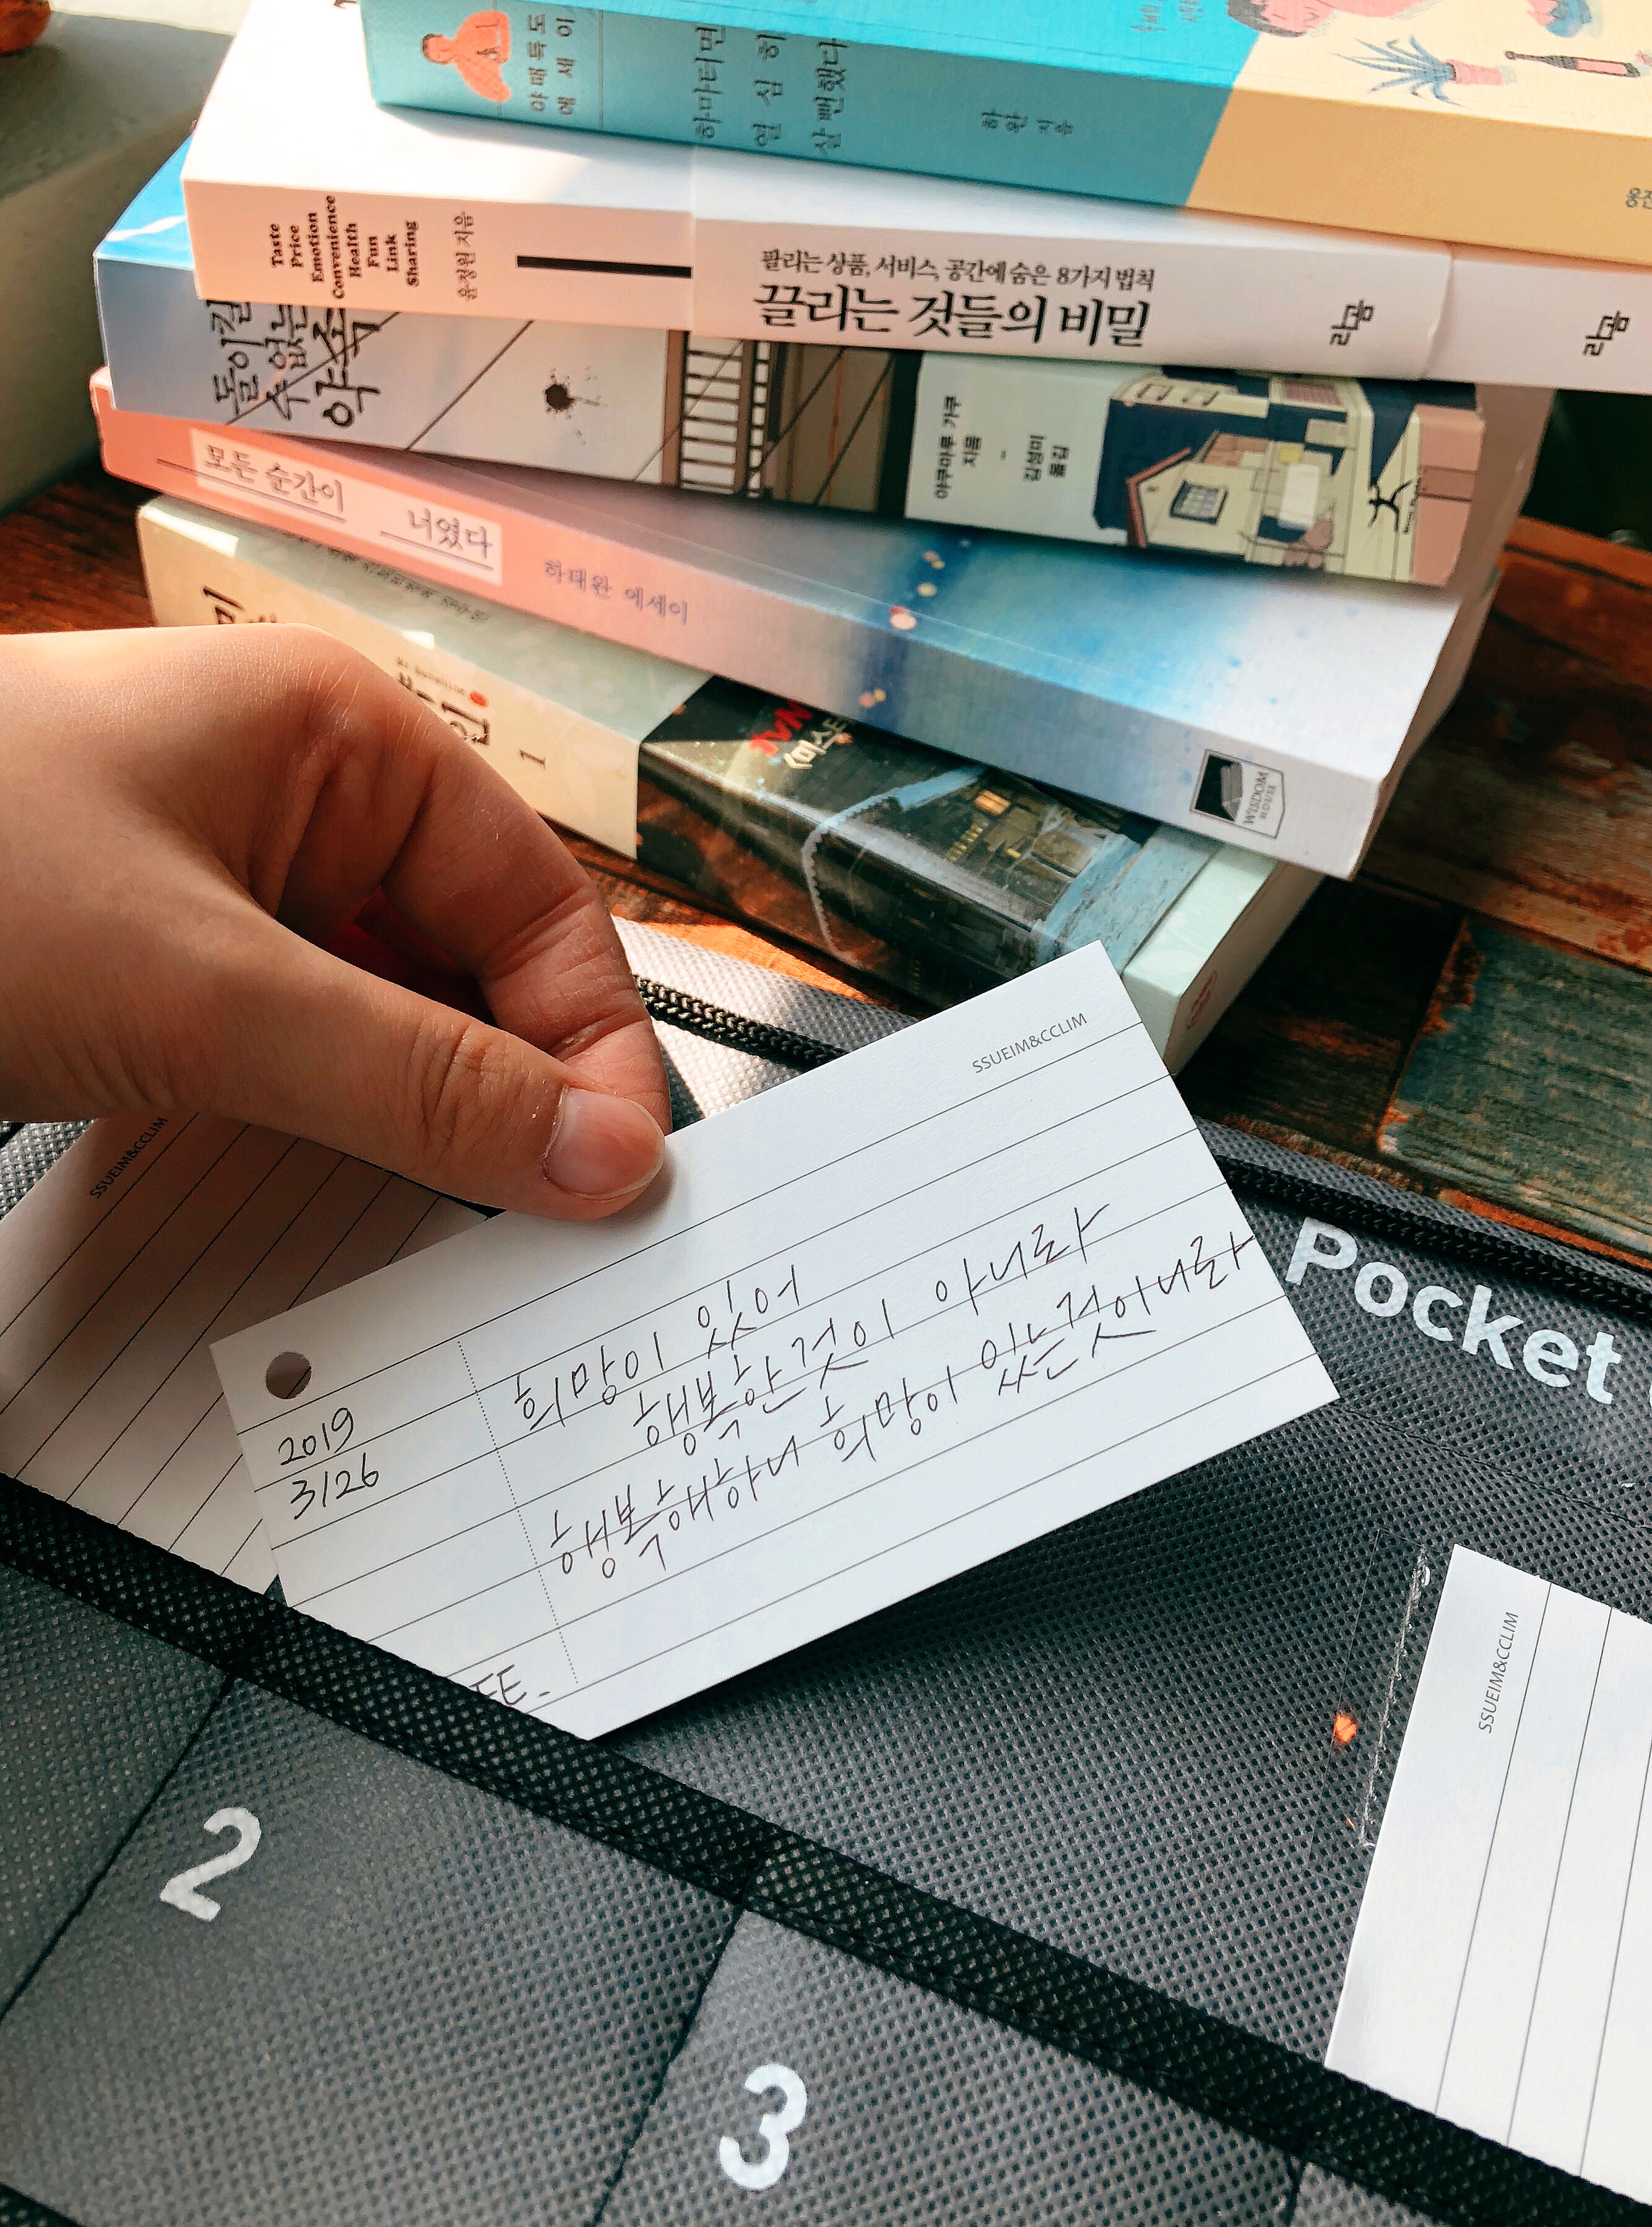 아 매 득 도
에 세 이
하마터면
열 심 히
살 뻔했다
하완 지음
Taste
Price
Emotion
Convenience
Health
Fun
Link
Sharing
윤정원 지음
팔리는 상품, 서비스, 공간에 숨은 8가지 법칙
끌리는 것들의 비밀
라곰
라곰
돌이킬
수 없는
약속
야쿠마루 가쿠
지음
김성미
옮김
모든 순간이
너였다
하태완 에세이
WISDOM
HOUSE
1
tvN
SSUEIM&CCLIM
SSUEIM&CCLIM
2019
3/26
희망이 있어
행복한것이 아니라
행복해하니 희망이 있는것이니라
EE.
Pocket
SSUEIM&CCLIM
2
3